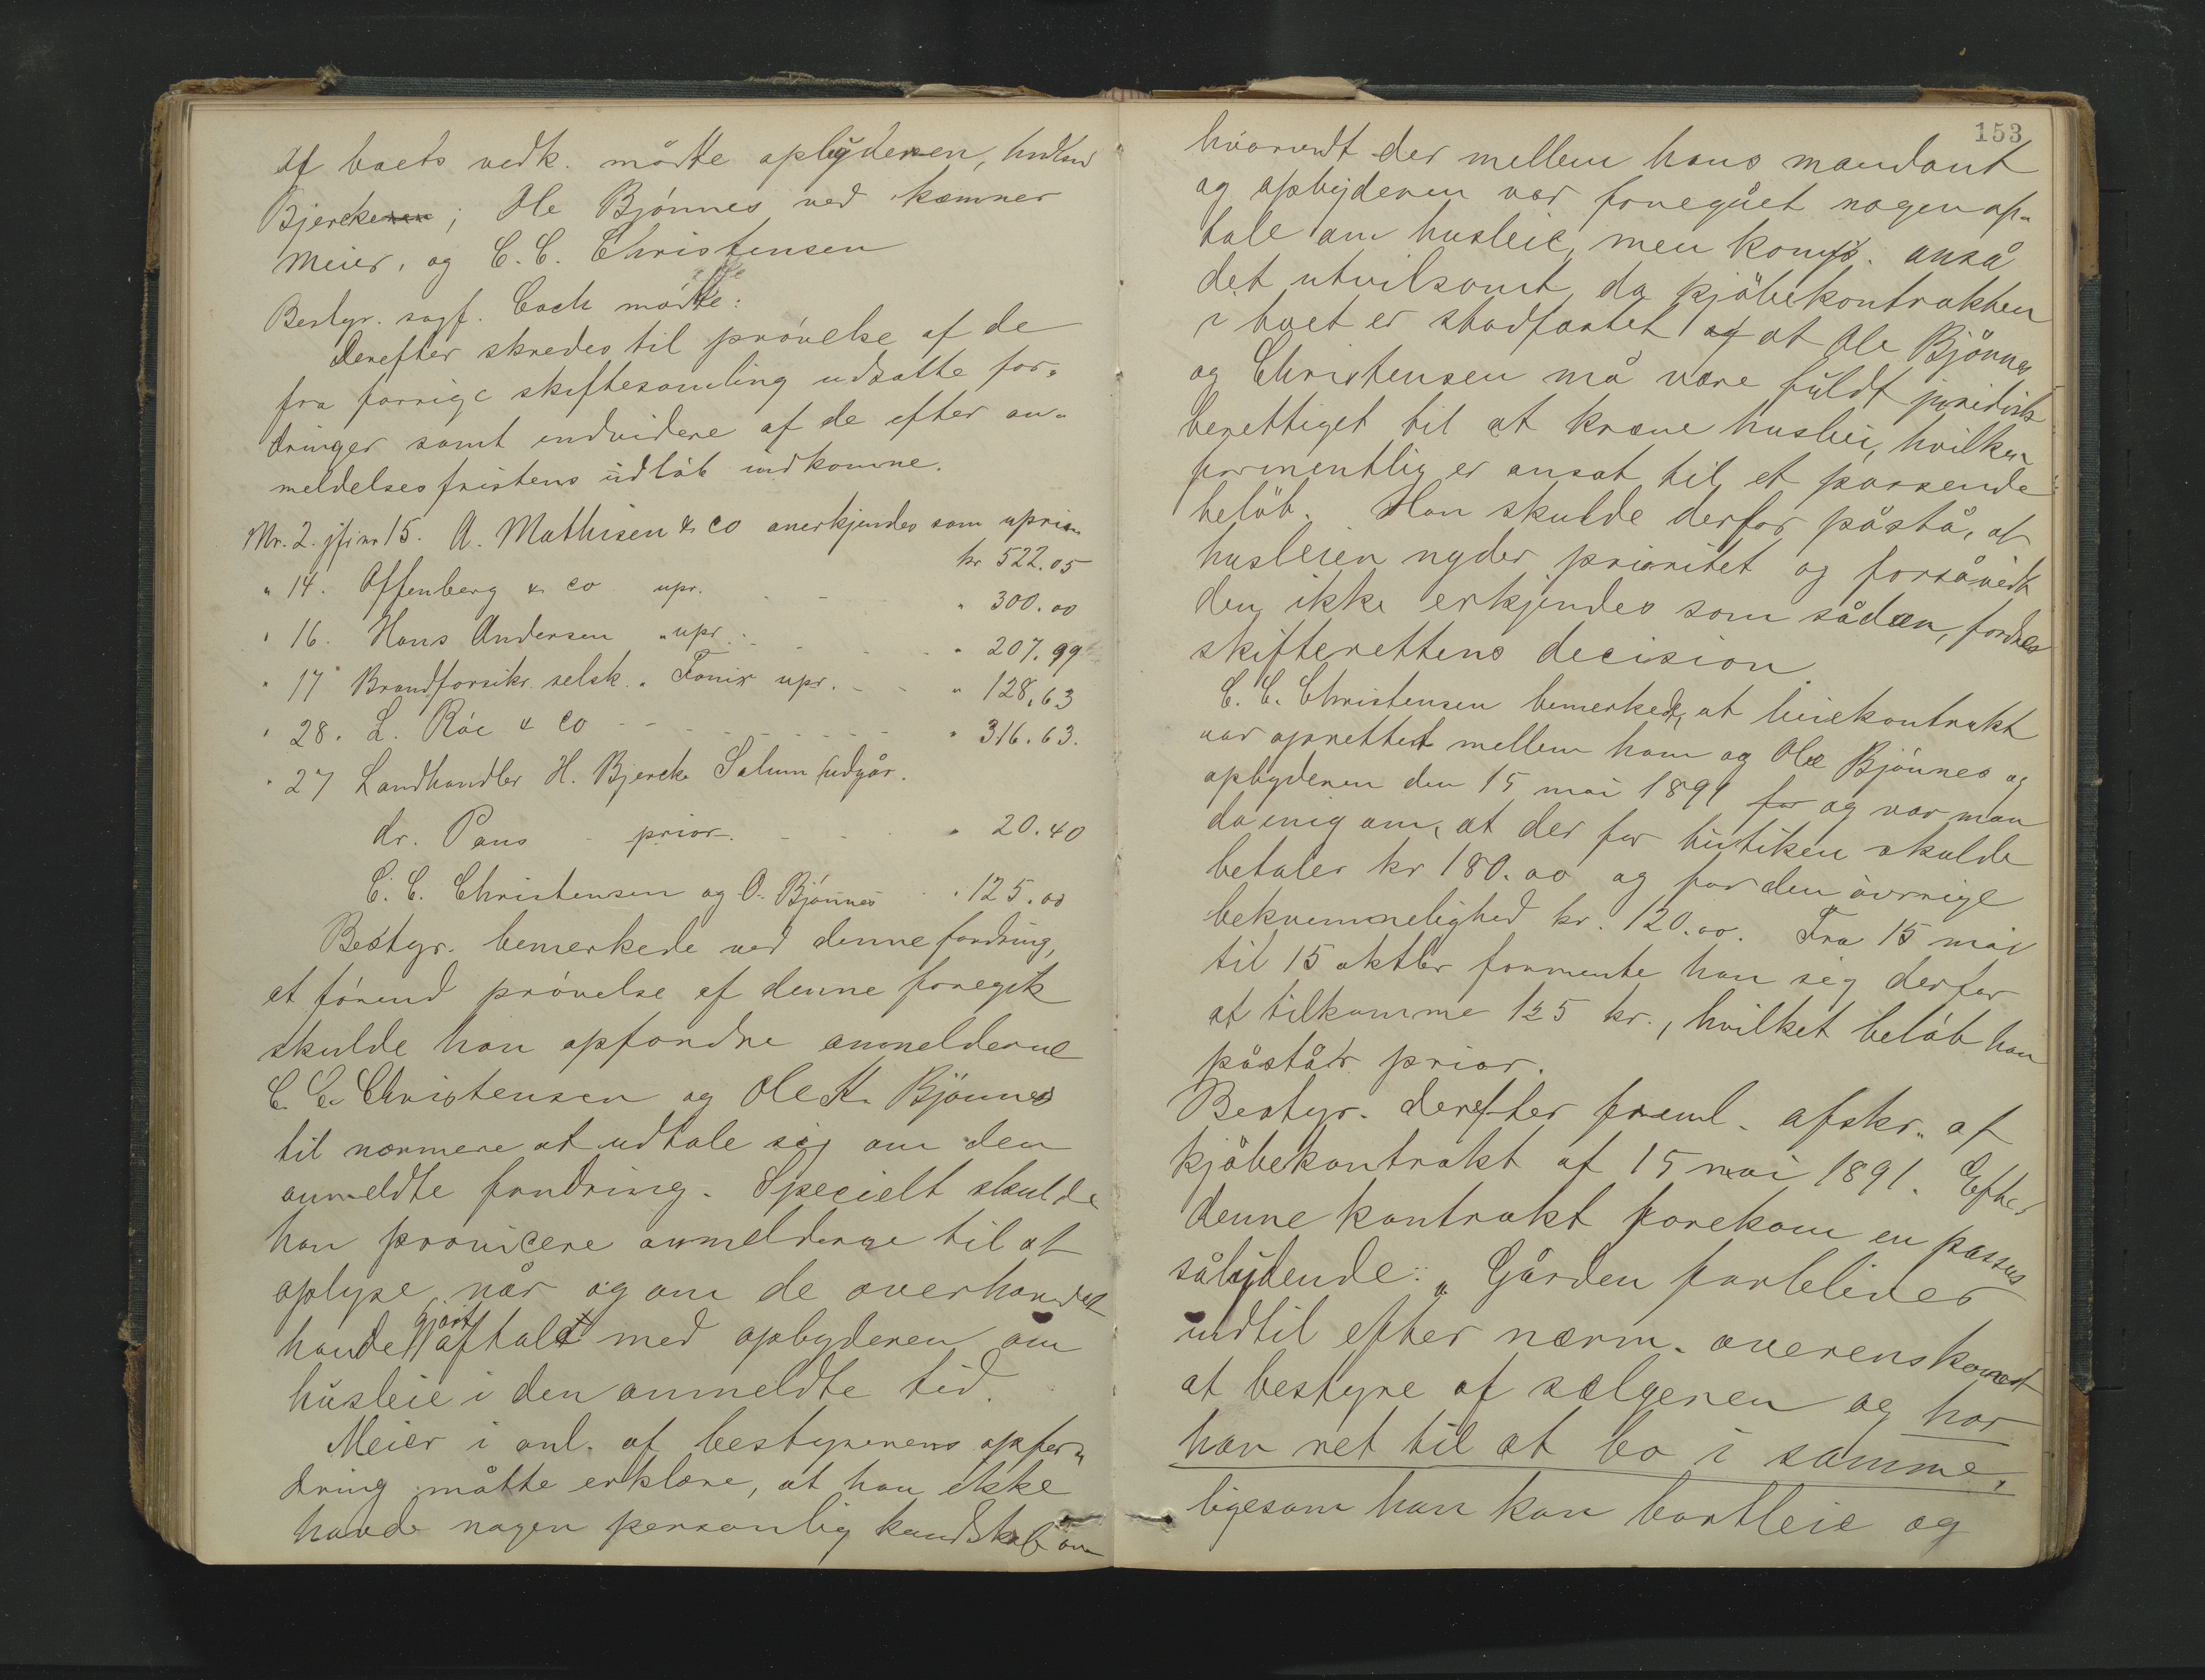 Af boets vedk. mødte opbyderen, hndlsm
Bjercke; Ole Bjönnes ved kæmner
Meier, og C. C. Christensen
Bestyr. sagf. Coch mødte ikke:
Derefter skredes til prøvelse af de
fra forrige skiftesamling udsatte for-
dringer samt endvidere af de efter an-
meldelsesfristens udløb indkomne.
Nr. 2. jfr nr 15. A. Mathisen & Co anerkjendes som uprior.
kr 522.05
" 14. Offenberg & Co upr. - - - " 300.00
" 16. Hans Andersen " upr. - - - " 207.99
" 17 Brandforsikr. selsk. " Fønix upr. - - " 128.63
" 28. L. Röe & Co - - - - - " 316.63.
" 27 Landhandler H. Bjercke Solum udgår.
dr. Paus - prior. - - " 20.40
C. C. Christensen og O. Bjönnes " 125.00
Bestyr. bemerkede ved denne fordring,
at førend prøvelse af denne foregik
skulde han opfordre anmelderne
C. C. Christensen og Ole K. Bjönnes
til nærmere at udtale sig om den
anmeldte fordring. Specielt skulde
han provicere anmelderne til at
oplyse når og om de overhovedet
havde gjort aftale med opbyderen om
husleie i den anmeldte tid.
Meier i anl. af bestyrerens opfor-
dring måtte erklære, at han ikke
havde nogen personlig kundskab om
153
hvorvidt der mellem hans mandant
og opbyderen var foregået nogen af-
tale om husleie, men komp. anså
det utvilsomt, da kjöbekontrakten
i boet er stadfæstet og at Ole Bjönnes
og Christensen må være fuldt juridisk
berettiget til at kræve husleie, hvilken
formentlig er ansat til et passende
beløb. Han skulde derfor påstå, at
husleien nyder prioritet og forsåvidt
den ikke erkjendes som sådan, fordres
skifterettens decision.
C. C. Christensen bemerkede, at leiekontrakt
var oprettet mellem ham og Ole Bjönnes og
opbyderen den 15 mai 1891 for og var man
da enig om, at der for butiken skulde
betales kr 180.00 og for den øvrige
bekvemmelighed kr. 120.00. Fra 15 mai
til 15 oktbr formente han sig derfor
at tilkomme 125 kr., hvilket beløb han
påstår prior.
Bestyr. derefter freml. afskr. af
kjöbekontrakt af 15 mai 1891. Efter
denne kontrakt forekom en passus
sålydende: " Gården forbliver
indtil efter nærm. overenskomst
at bestyre af sælgeren og har
han ret til at bo i samme,
ligesom han kan bortleie og